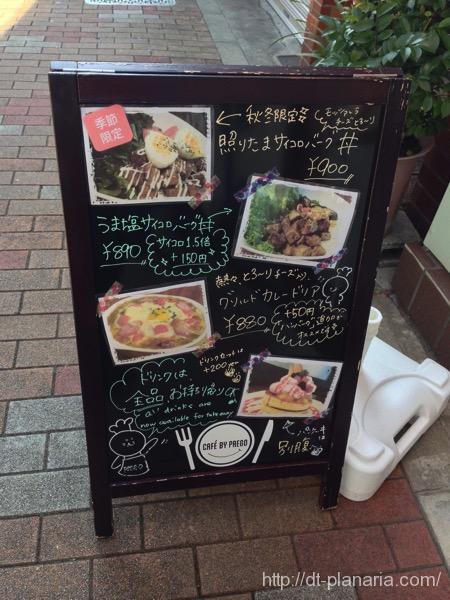 季節
限定
← 秋冬限定
モッツァレラ
チーズとろ〜り
照りたまサイコロバーグ丼
¥900
うま塩サイコロバーグ丼
¥890
サイコロ1.5倍
+150円
熱々、とろ〜りチーズ入り
グリルドカレードリア
¥880
+50円
ハンバーグ
ドリンクセットは
+200
ドリンクは、
全品お持ち帰りOK
all drinks are
now available for take away
パンケーキは
別腹
CAFÉ BY PREGO
http://dt-planaria.com/